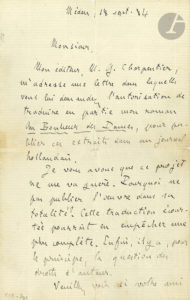 Médan, 18 sept. 84
Monsieur
Mon éditeur, M. G. Charpentier,
m'adresse une lettre dans laquelle
vous lui demandez l'autorisation de
traduire en partie mon roman
Au Bonheur des Dames, pour pu-
blier ces extraits dans un journal
hollandais.
Je vous avoue que ce projet
ne me va guère. Pourquoi ne
pas publier l'œuvre dans sa
totalité? Cette traduction écour-
tée pourrait en empêcher une
plus complète. Enfin, il y a, pour
le principe, la question des
droits d'auteur.
Veuillez voir